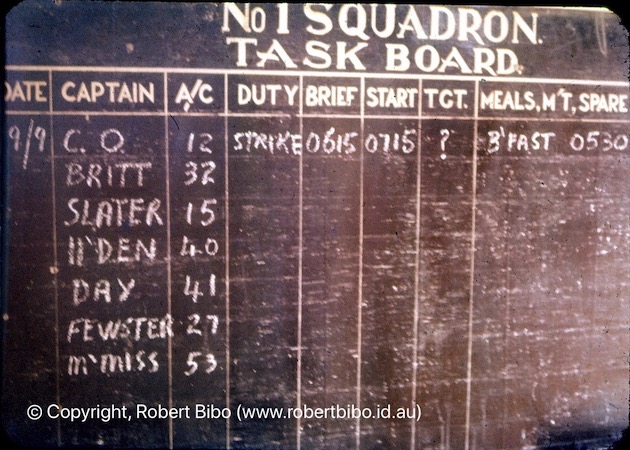 No 1 SQUADRON.
TASK BOARD.
DATE CAPTAIN A/C DUTY BRIEF START TGT. MEALS, M'T, SPARE
9/9 C. O. 12 STRIKE 0615 0715 ? B'FAST 0530
BRITT 32
SLATER 15
H'DEN 40
DAY 41
FEWSTER 27
M'MISS 53
© Copyright, Robert Bibo (www.robertbibo.id.au)